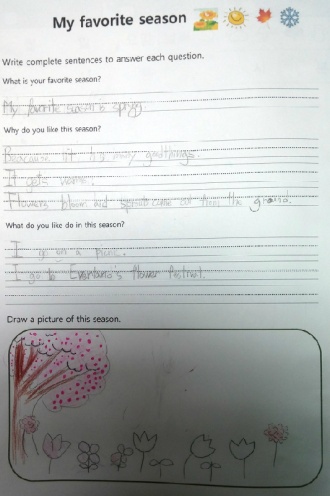 My favorite season
Write complete sentences to answer each question.
What is your favorite season?
My favorite season is spring.
Why do you like this season?
Beacause it has many good things.
It gets warm.
Flowers bloom and sprouts come out from the ground.
What do you like do in this season?
I go on a picnic.
I go to Everland's flower festival.
Draw a picture of this season.